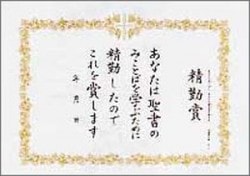 精勤賞
あなたは聖書の
みことばを学ぶために
精勤したので
これを賞します
年 月 日